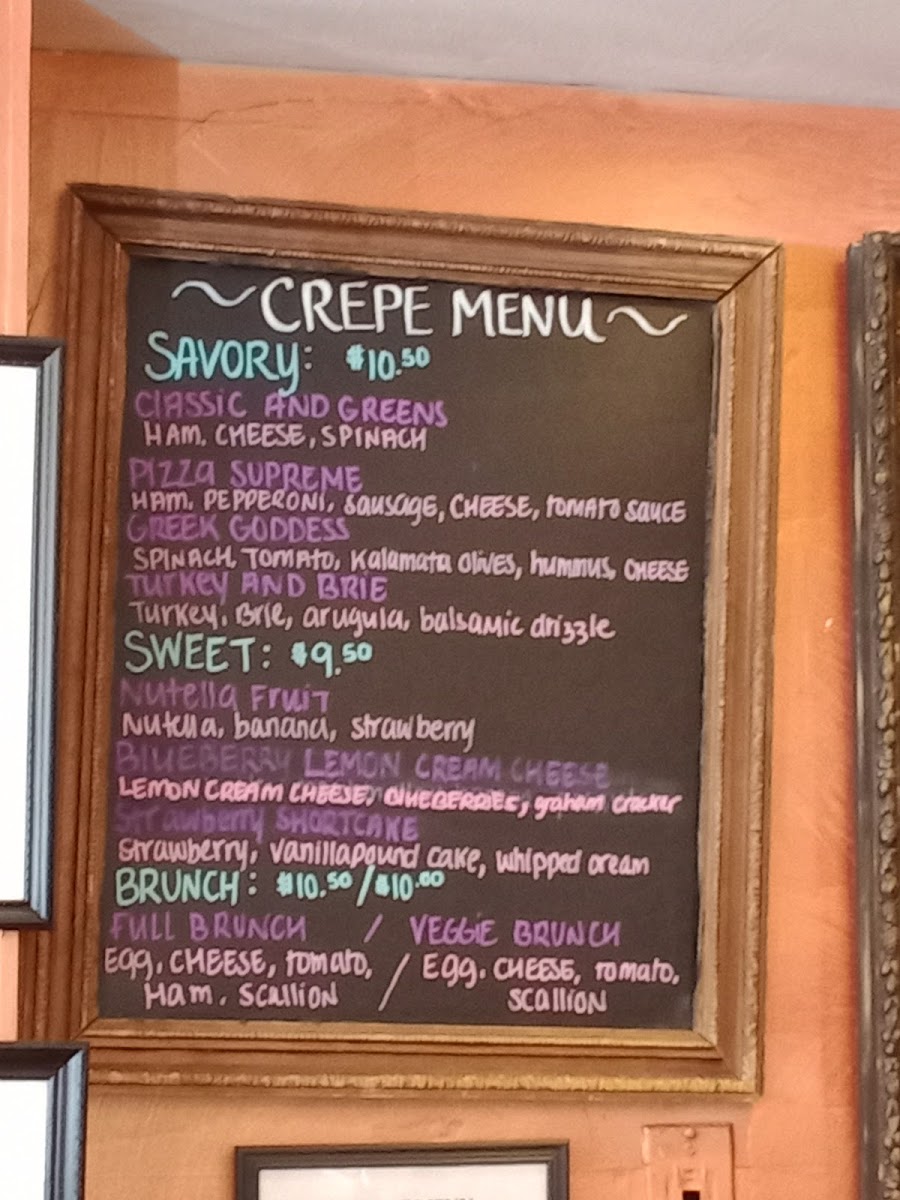 ~CREPE MENU~
SAVORY: $10.50
CLASSIC AND GREENS
HAM, CHEESE, SPINACH
PIZZA SUPREME
HAM, PEPPERONI, SAUSAGE, CHEESE, TOMATO SAUCE
GREEK GODDESS
SPINACH, TOMATO, Kalamata Olives, hummus, CHEESE
Turkey AND BRIE
Turkey, Brie, arugula, balsamic drizzle
SWEET: $9.50
Nutella Fruit
Nutella, banana, strawberry
BLUEBERRY LEMON CREAM CHEESE
LEMON CREAM CHEESE, BLUEBERRIES, graham cracker
Strawberry SHORTCAKE
strawberry, vanilla pound cake, whipped cream
BRUNCH: $10.50/$10.00
FULL BRUNCH / VEGGIE BRUNCH
Egg, CHEESE, tomato, / Egg, CHEESE, tomato,
Ham, Scallion / Scallion